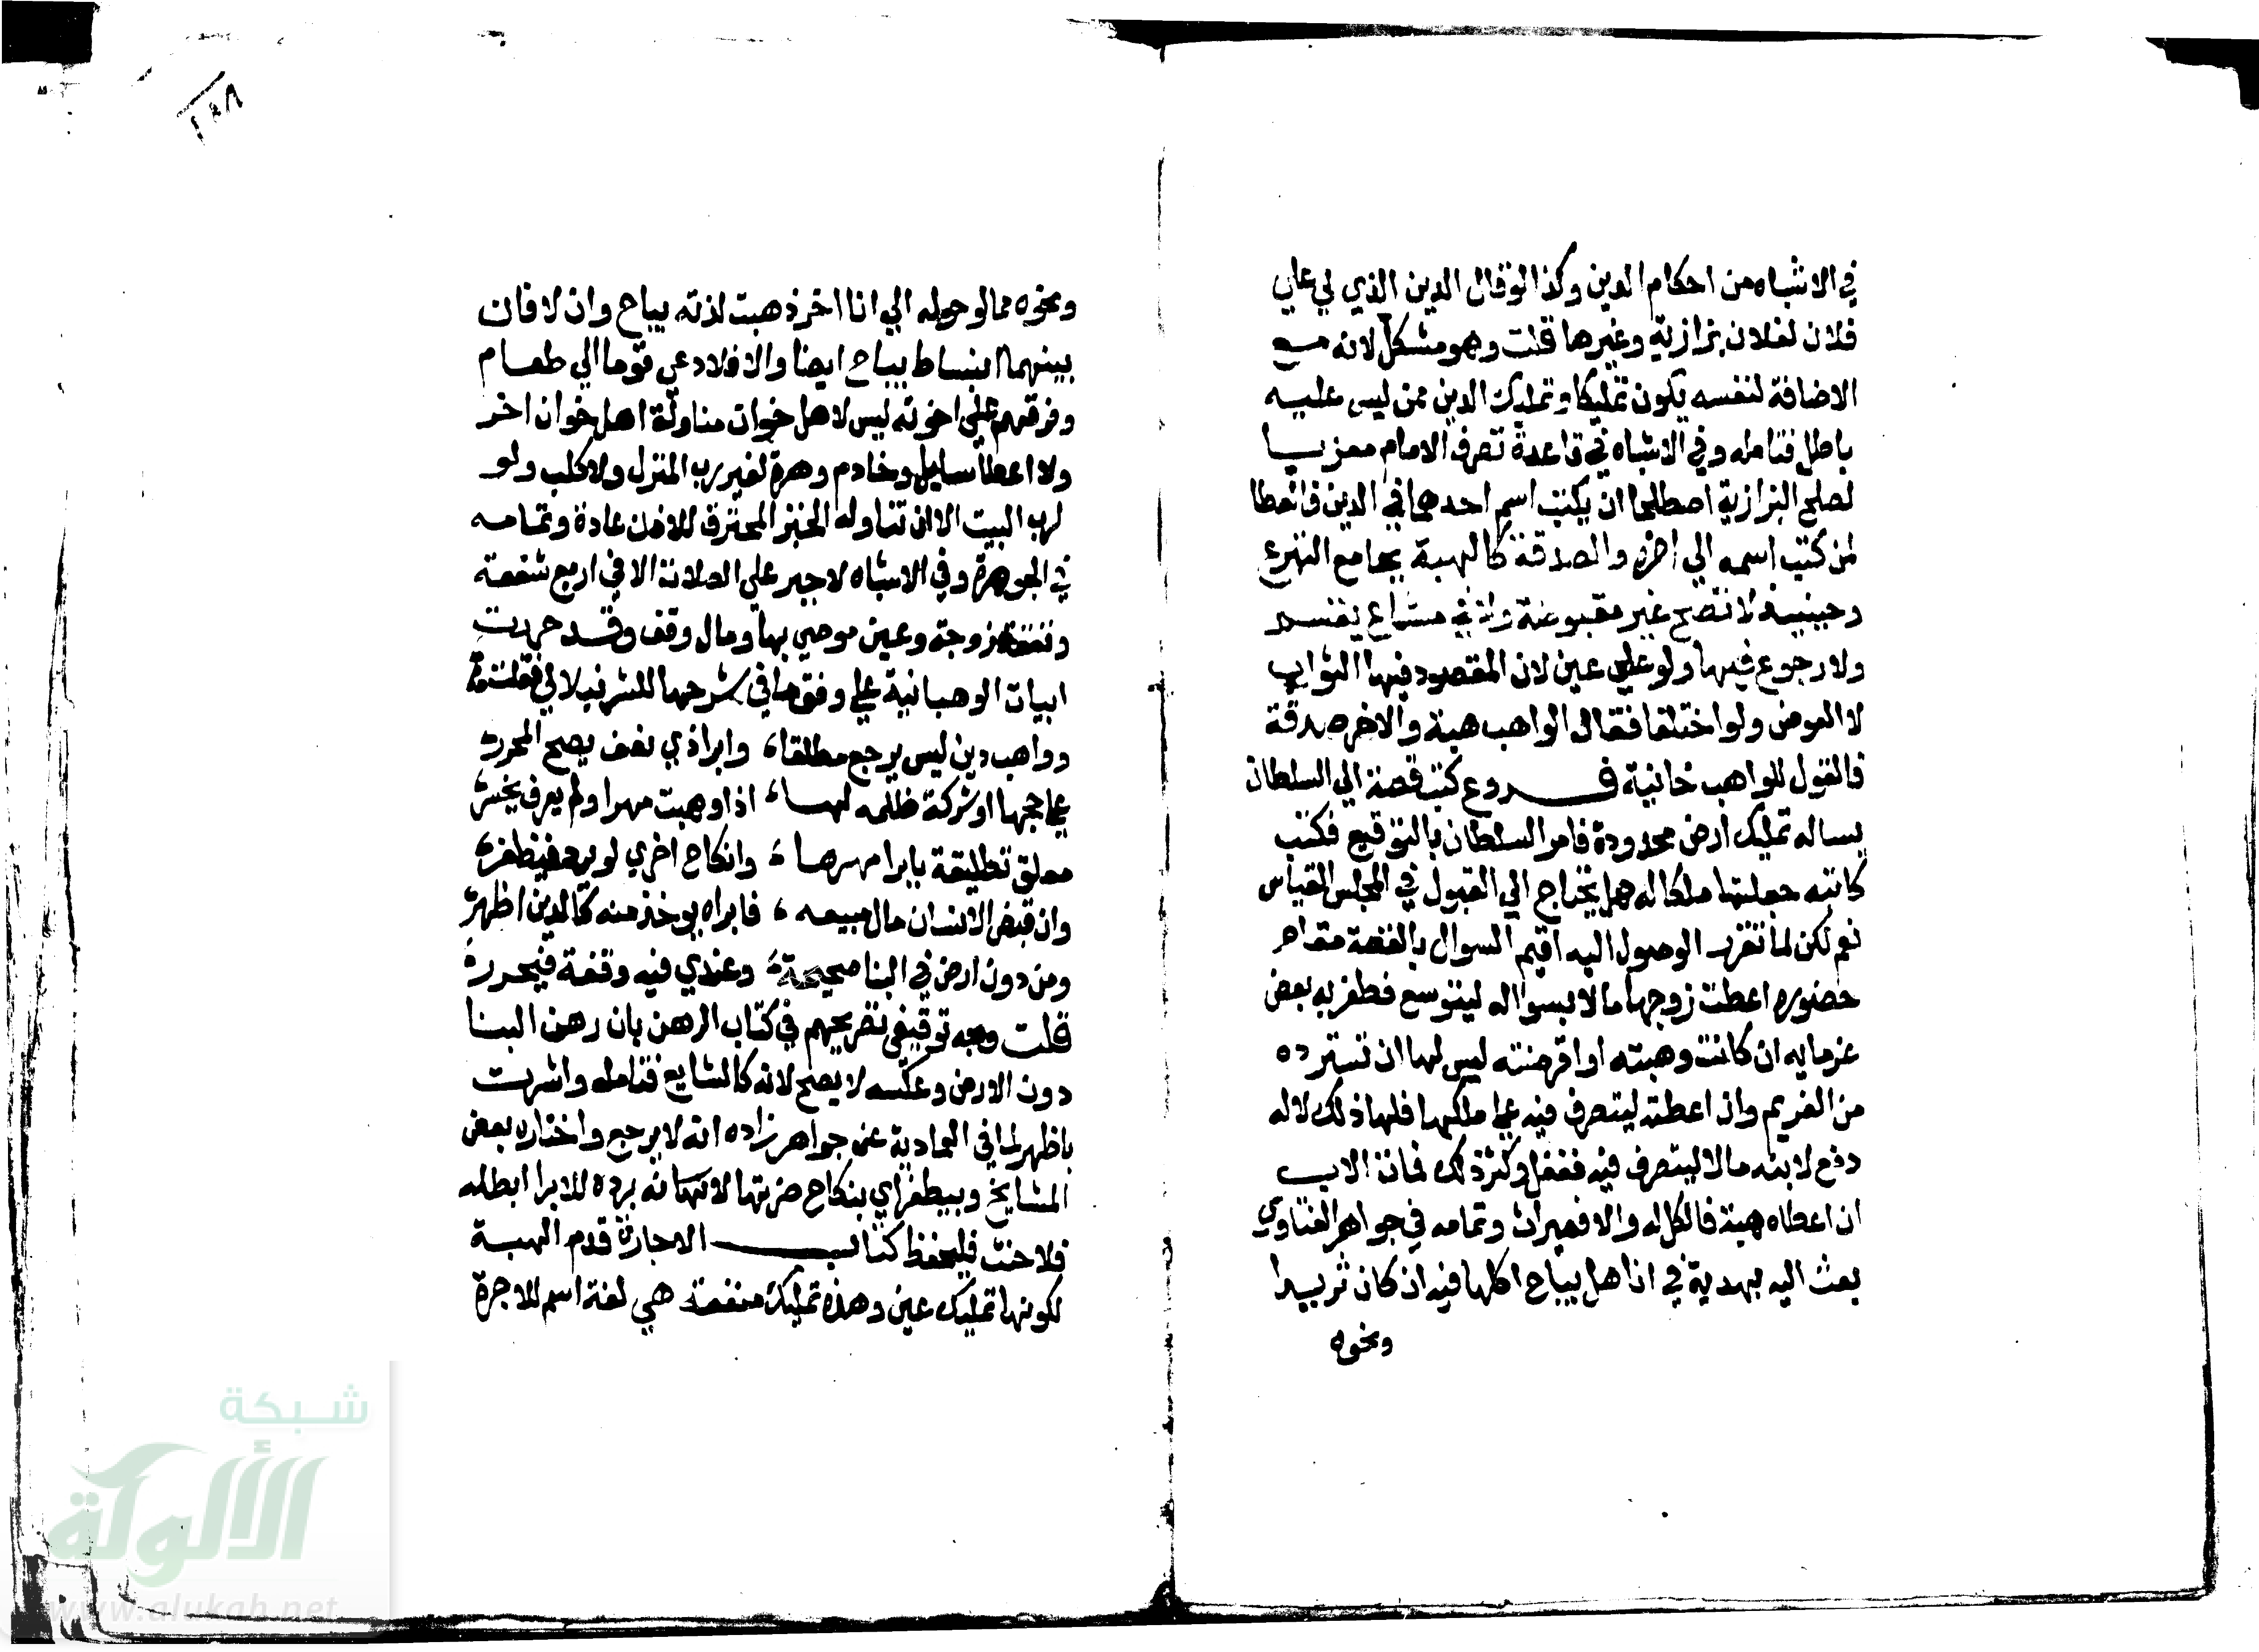 في الاشباه من احكام الدين وكذا لو قال الدين الذي لي علي
فلان لفلان بزازية وغيرها قلت وهو مشكل لانه مع
الاضافة لنفسه يكون تمليكا وتمليك الدين ممن ليس عليه
باطل فتامله وفي الاشباه في قاعدة تصرف الامام معزيا
لصلح البزازية اصطلحا ان يكتب اسم احدهما في الديوان فالعطا
لمن كتب اسمه الي اخره والصدقة كالهبة بجامع التبرع
وحينيذ لا تصح غير مقبوضة ولا في مشاع يقسم
ولا رجوع فيها ولو علي عين لان المقصود فيها الثواب
لا العوض ولو اختلفا فقال الواهب هبة والاخر صدقة
فالقول للواهب خانية فروع كتب قصة الي السلطان
يساله تمليك ارض محدودة فامر السلطان بالتوقيع فكتب
كاتبه جعلتها ملكا له هل يحتاج الي القبول في المجلس القياس
نعم لكن لما تعذر الوصول اليه اقيم السوال بالقصة مقام
حضوره اعطت زوجها مالا بسواله ليتوسع فظفر به بعض
غرمايه ان كانت وهبته او اقرضته ليس لها ان تسترده
من الغريم وان اعطته ليتصرف فيه علي ملكها فلها ذلك لا له
دفع لابنه مالا ليتصرف فيه ففعل وكثر ذلك فمات الاب
ان اعطاه هبة فالكل له والا فميراث وتمامه في جواهر الفتاوي
بعث اليه بهدية في انا هل يباح اكلها فيه ان كان ثريدا
ونحوه
١٨٨
ونحوه مما لو حوله الي انا اخر ذهبت لذته يباح وان لا فان
بينهما انبساط يباح ايضا والا فلا دعي قوما الي طعام
وفرقهم علي اخونه ليس لاهل خوان مناولة اهل خوان اخر
ولا اعطا سايل وخادم وهرة لغير رب المنزل ولا كلب ولو
لرب البيت الا ان تناوله الخبز المحترق للاذن عادة وتمامه
في الجوهرة وفي الاشباه لا جبر علي الصلاة الا في اربع شفعة
ونفقة زوجة وعين موصي بها ومال وقف وقد حررت
ابيات الوهبانية علي وفق ما في شرحها للشرنبلالي فقلت
وواهب دين ليس يرجع مطلقا وابرا ذي نصف يصح المحرر
علي حجها او شركة ظلمه لها اذا وهبت مهرا ولم يعرف يخسر
معلق تطليقة بابرا مهرها وانكاح اخري لو يرد فيظفر
وان قبض الانسان مال مبيعه فابراه يوخذ منه كالدين اظهر
ومن دون ارض في البنا صحيحة وعندي فيه وقفة فيحرر
قلت وجه توقيفي تصريحهم في كتاب الرهن بان رهن البنا
دون الارض وعكسه لا يصح لانه كالشايع فتامله واشرت
باظهر لما في العمادية عن جواهر زاده انه لا يرجع واختاره بعض
المشايخ وبيظفر اي بنكاح ضرتها لانهانه برده للابرا ابطله
فلا حنث فليحفظ كتاب الاجارة قدم الهبة
لكونها تمليك عين وهذه تمليك منفعة هي لغة اسم للاجرة
شبكة
الألوكة
www.alukah.net